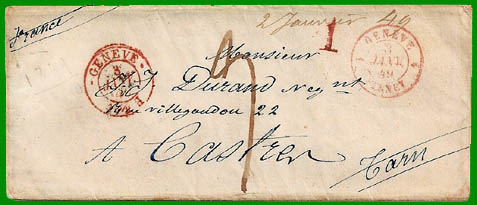 France
2 Janvier 49
1
GENÈVE
GENÈVE
3
JANV.
49
Monsieur
J Durand Neg nt
Rue villegoudou 22
A Castres
Tarn